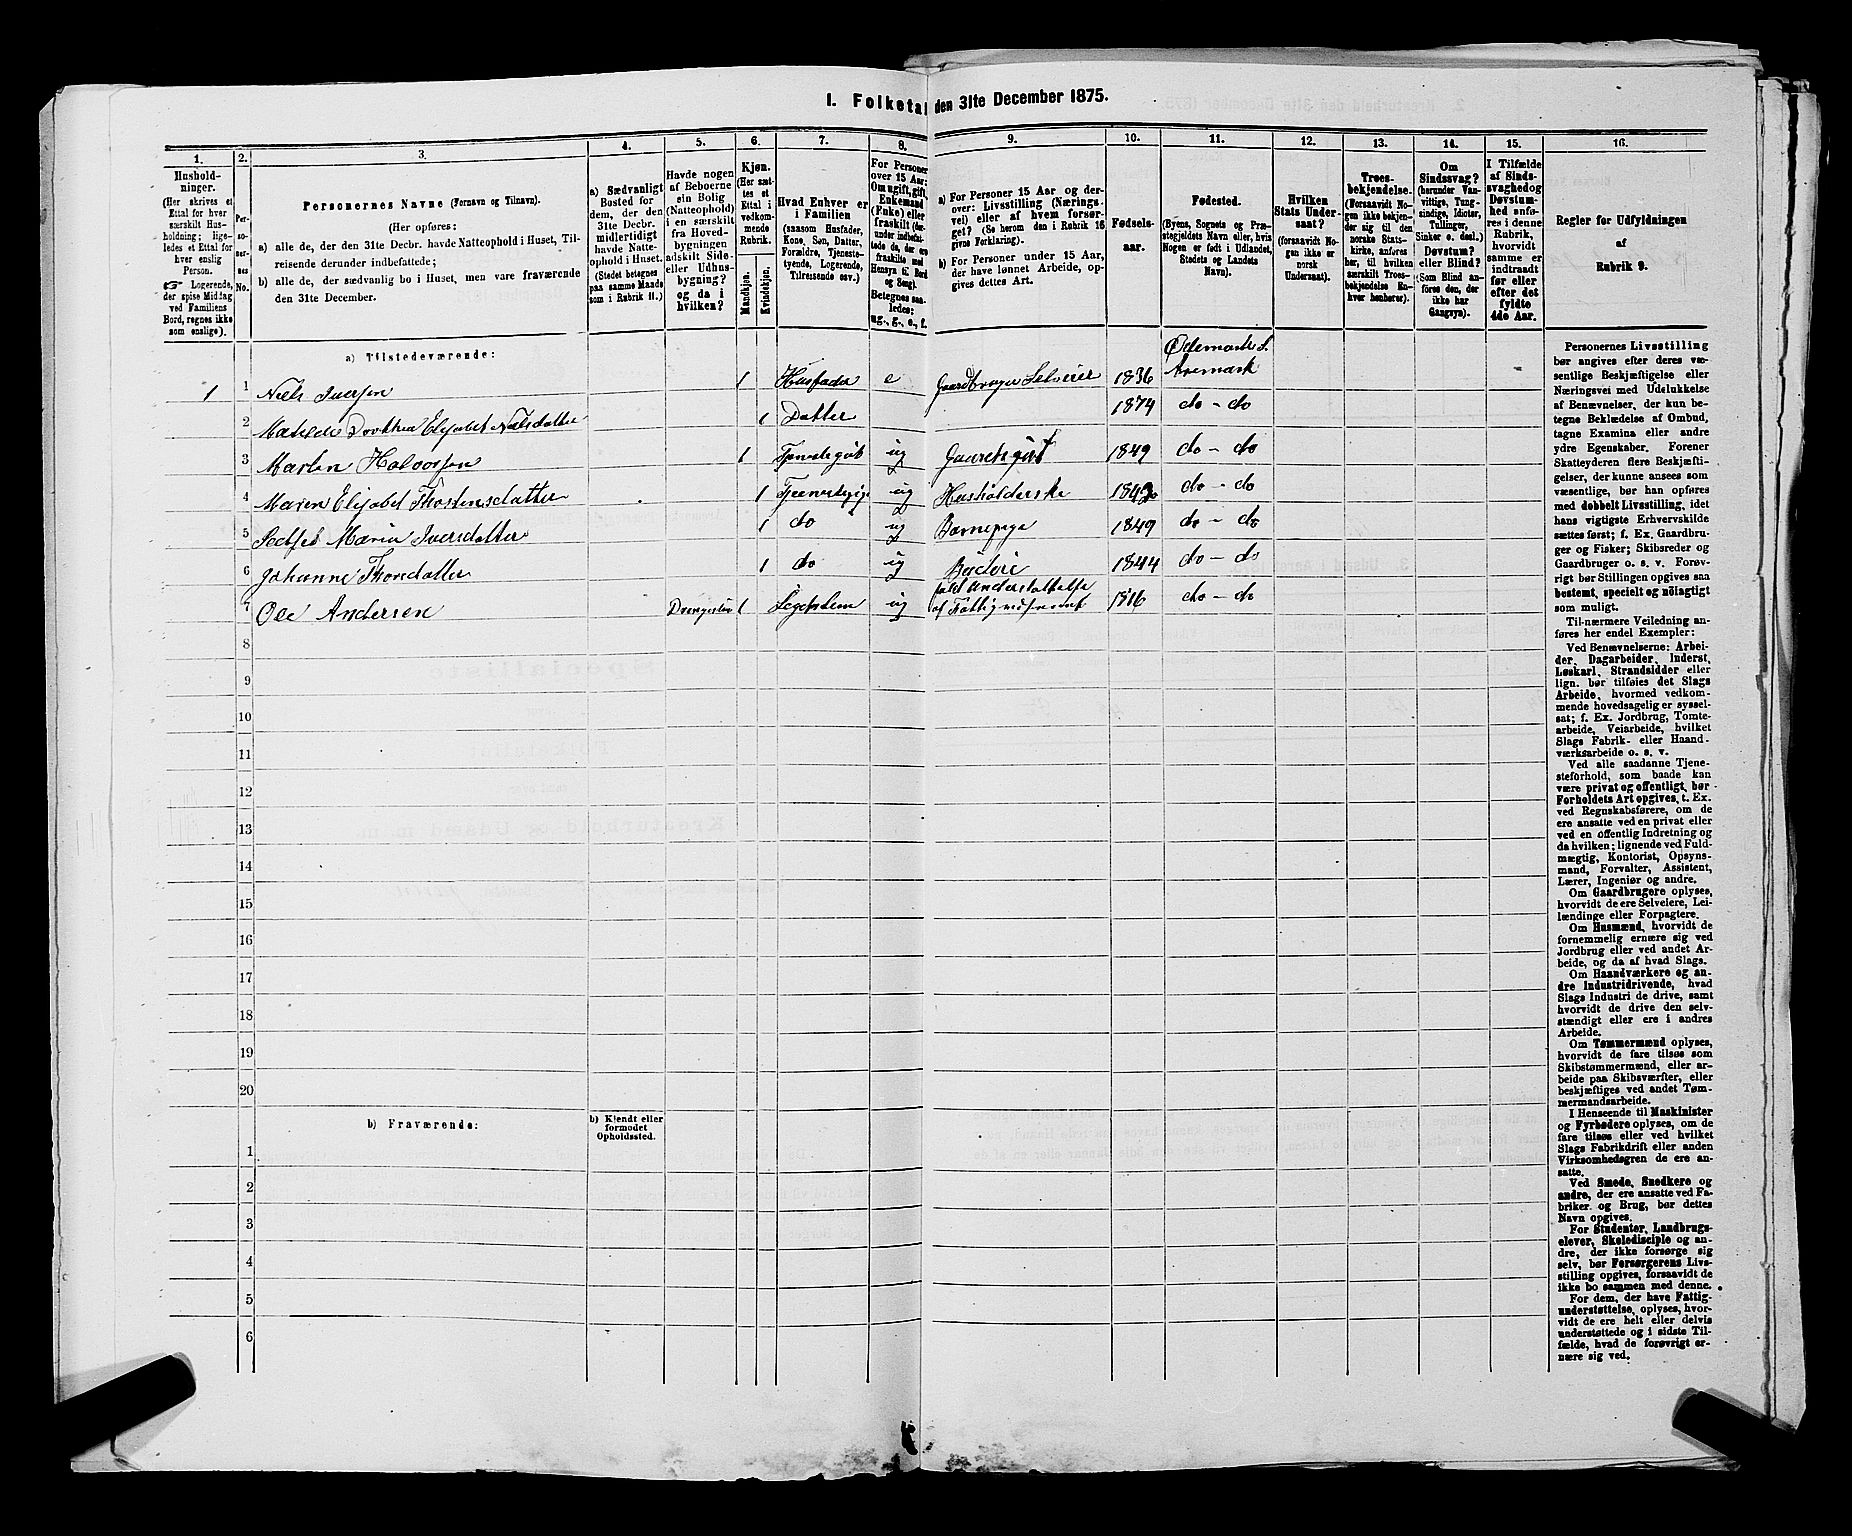 1. Folketal den 31te December 1875.
1. 2. 3. 4. 5. 6. 7. 8. 9. 10. 11. 12. 13. 14. 15. 16.
Hushold-
ninger.
(Her skrives et
Ettal for hver
særskilt Hus-
holdning; lige-
ledes et Ettal for
hver enslig
Person.
Logerende,
der spise Middag
ved Familiens
Bord, regnes ikke
som enslige).
Per-
so-
ner-
nes
No.
Personernes Navne (Fornavn og Tilnavn).
(Her opføres:
a) alle de, der den 31te Decbr. havde Natteophold i Huset, Til-
reisende derunder indbefattede;
b) alle de, der sædvanlig bo i Huset, men vare fraværende
den 31te December.
a) Sædvanligt
Bosted for
dem, der den
31te Decbr.
midlertidigt
havde Natte-
ophold i Huset.
(Stedet betegnes
paa samme Maade
som i Rubrik 11.)
Havde nogen
af Beboerne
sin Bolig
(Natteophold)
i en særskilt
fra Hoved-
bygningen
adskilt Side-
eller Udhus-
bygning?
og da i
hvilken?
Kjøn.
(Her sæt-
tes et
Ettal i
vedkom-
mende
Rubrik.
Mandkjøn.
Kvindekjøn.
Hvad Enhver er
i Familien
(saasom Husfader,
Kone, Søn, Datter,
Forældre, Tjeneste-
tyende, Logerende,
Tilreisende osv.)
For Personer
over 15 Aar:
Om ugift, gift,
Enkemand
(Enke) eller
fraskilt (der-
under indbefat-
tede de, der ere
fraskilte med
Hensyn til Bord
og Seng).
Betegnes saa-
ledes:
ug., g., e., f.
a) For Personer 15 Aar og der-
over: Livsstilling (Nærings-
vei) eller af hvem forsør-
get? (Se herom den i Rubrik 16
givne Forklaring).
b) For Personer under 15 Aar,
der have lønnet Arbeide, op-
gives dettes Art.
Fødsels-
aar.
Fødested.
(Byens, Sognets og Præ-
stegjeldets Navn eller, hvis
Nogen er født i Udlandet,
Stedets og Landets
Navn).
Hvilken
Stats Under-
saat?
(forsaavidt No-
gen ikke er
norsk
Undersaat).
Troes-
bekjendelse.
(Forsaavidt No-
gen ikke bekjen-
der sig til den
norske Stats-
kirke, anføres
her, til hvilken
særskilt Troes-
bekjendelse En-
hver henhører).
Om
Sindssvag?
(herunder Van-
vittige, Tung-
sindige, Idioter,
Tullinger,
Sinker o. desl.)
Døvstum?
eller Blind?
(Som Blind an-
føres den, der
ikke har
Gangsyn).
I Tilfælde
af Sinds-
svaghed og
Døvstum-
hed anfø-
res i denne
Rubrik,
hvorvidt
samme er
indtraadt
før eller
efter det
fyldte
4de Aar.
Regler for Udfyldningen
af
Rubrik 9.
a) Tilstedeværende:
Ødemark S.
1 1 Niels Iversen 1 Husfader e Gaardbruger Selveier 1836 Aremark
2 Matilde Dorthea Elisabet Nilsdatter 1 Datter 1874 do - do
3 Martin Halvorsen 1 Tjenestegut ug Gaardsgut 1849 do - do
4 Maren Elisabet Thostensdatter 1 Tjenestepige ug Husholderske do - do
5 Maria Iversdatter 1 do ug Barnepige 1849 do - do
6 Johanne Thorsdatter 1 do ug Budeie 1844 do - do
7 Ole Andersen 1 ug af Fattigvæsenet 1816 do - do
8
9
10
11
12
13
14
15
16
17
18
19
20
b) Fraværende:
b) Kjendt eller
formodet
Opholdssted.
1
2
3
4
5
6
Personernes Livsstilling
bør angives efter deres væ-
sentlige Beskjæftigelse eller
Næringsvei med Udelukkelse
af Benævnelser, der kun be-
tegne Beklædelse af Ombud,
tagne Examina eller andre
ydre Egenskaber. Forener
Skatteyderen flere Beskjæfti-
gelser, der kunne ansees som
væsentlige, bør han opføres
med dobbelt Livsstilling, idet
hans vigtigste Erhvervskilde
sættes først; f. Ex. Gaardbru-
ger og Fisker; Skibsreder og
Gaardbruger o. s. v. Forøv-
rigt bør Stillingen opgives saa
bestemt, specielt og nöiagtigt
som muligt.
Til nærmere Veiledning an-
føres her endel Exempler:
Ved Benævnelserne: Arbei-
der, Dagarbeider, Inderst,
Løskarl, Strandsidder eller
lign. bør tilføies det Slags
Arbeide, hvormed vedkom-
mende hovedsagelig er syssel-
sat; f. Ex. Jordbrug, Tomte-
arbeide, Veiarbeide, hvilket
Slags Fabrik- eller Haand-
værksarbeide o. s. v.
Ved alle saadanne Tjene-
steforhold, som baade kan
være privat og offentligt, bør
Forholdets Art opgives, t. Ex.
ved Regnskabsførere, om de
ere ansatte ved en privat eller
ved en offentlig Indretning og
da hvilken; lignende ved Fuld-
mægtig, Kontorist, Opsyns-
mand, Forvalter, Assistent,
Lærer, Ingeniør og andre.
Om Gaardbrugere oplyses,
hvorvidt de ere Selveiere, Lei-
lændinge eller Forpagtere.
Om Husmænd, hvorvidt de
fornemmelig ernære sig ved
Jordbrug eller ved andet Ar-
beide, og da af hvad Slags.
Om Haandværkere og an-
dre Industridrivende, hvad
Slags Industri de drive, samt
hvorvidt de drive den selv-
stændigt eller ere i andres
Arbeide.
Om Tømmermænd oplyses,
hvorvidt de fare tilsøs som
Skibstømmermænd, eller ar-
beide paa Skibsværfter, eller
beskjæftiges ved andet Tøm-
mermandsarbeide.
I Henseende til Maskinister
og Fyrbødere oplyses, om de
fare tilsøs eller ved hvilket
Slags Fabrikdrift eller anden
Virksomhedsgren de ere an-
satte.
Ved Smede, Snedkere og
andre, der ere ansatte ved Fa-
briker og Brug, bør dettes
Navn opgives.
For Studenter, Landbrugs-
elever, Skoledisciple og an-
dre, der ikke forsørge sig
selv, bør Forsørgerens Livs-
stilling opgives, forsaavidt de
ikke bo sammen med denne.
For dem, der have Fattig-
understøttelse, oplyses, hvor-
vidt de ere helt eller delvis
understøttede og i sidste Til-
fælde, hvad de forøvrigt er-
nære sig ved.